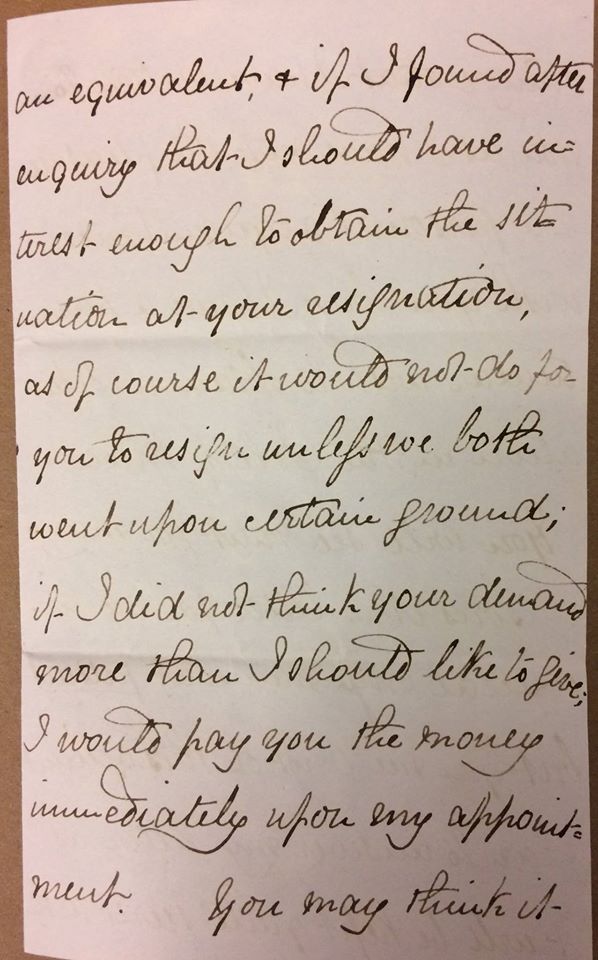 an equivalent, & if I found after
enquiry that I should have in=
terest enough to obtain the sit=
uation at your resignation,
as of course it would not do for
you to resign unless we both
went upon certain ground;
if I did not think your demand
more than I should like to give;
I would pay you the money
immediately upon my appoint=
ment. You may think it